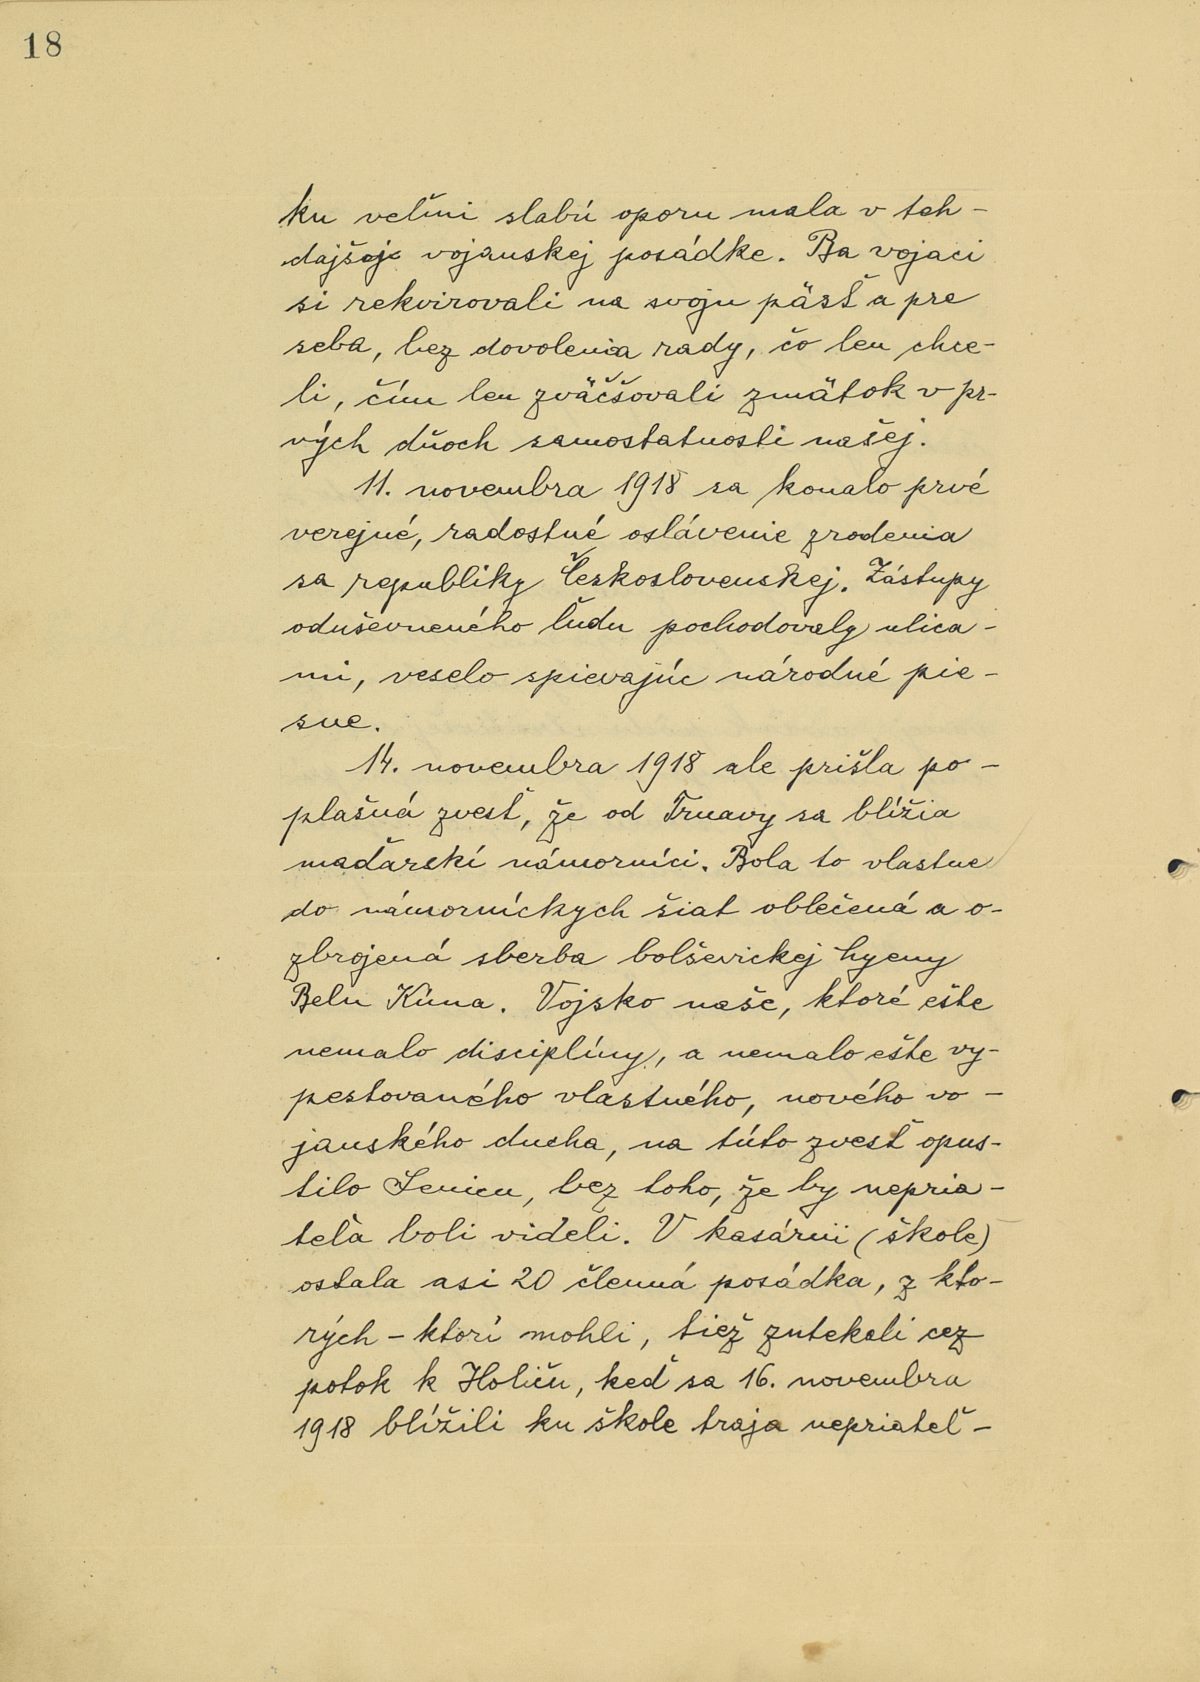 18
ku veľmi slabú oporu mala v teh-
dajšej vojanskej posádke. Ba vojaci
si rekvirovali na svoju päsť a pre
seba, bez dovolenia rady, čo len chce-
li, čím len zväčšovali zmätok v pr-
vých dňoch samostatnosti našej.
11. novembra 1918 sa konalo prvé
verejné, radostné oslávenie zrodenia
sa republiky Československej. Zástupy
oduševneného ľudu pochodovaly ulica-
mi, veselo spievajúc národné pie-
sne.
14. novembra 1918 ale prišla po-
plašná zvesť, že od Trnavy sa blížia
maďarskí námorníci. Bola to vlastne
do námorníckych šiat oblečená a o-
zbrojená sberba bolševickej hyeny
Belu Kúna. Vojsko naše, ktoré ešte
nemalo disciplíny, a nemalo ešte vy-
pestovaného vlastného, nového vo-
janského ducha, na túto zvesť opus-
tilo Senicu, bez toho, že by nepria-
teľa boli videli. V kasárnii (škole)
ostala asi 20 členná posádka, z kto-
rých - ktorí mohli, tiež zutekali cez
potok k Holiču, keď sa 16. novembra
1918 blížili ku škole traja nepriateľ-